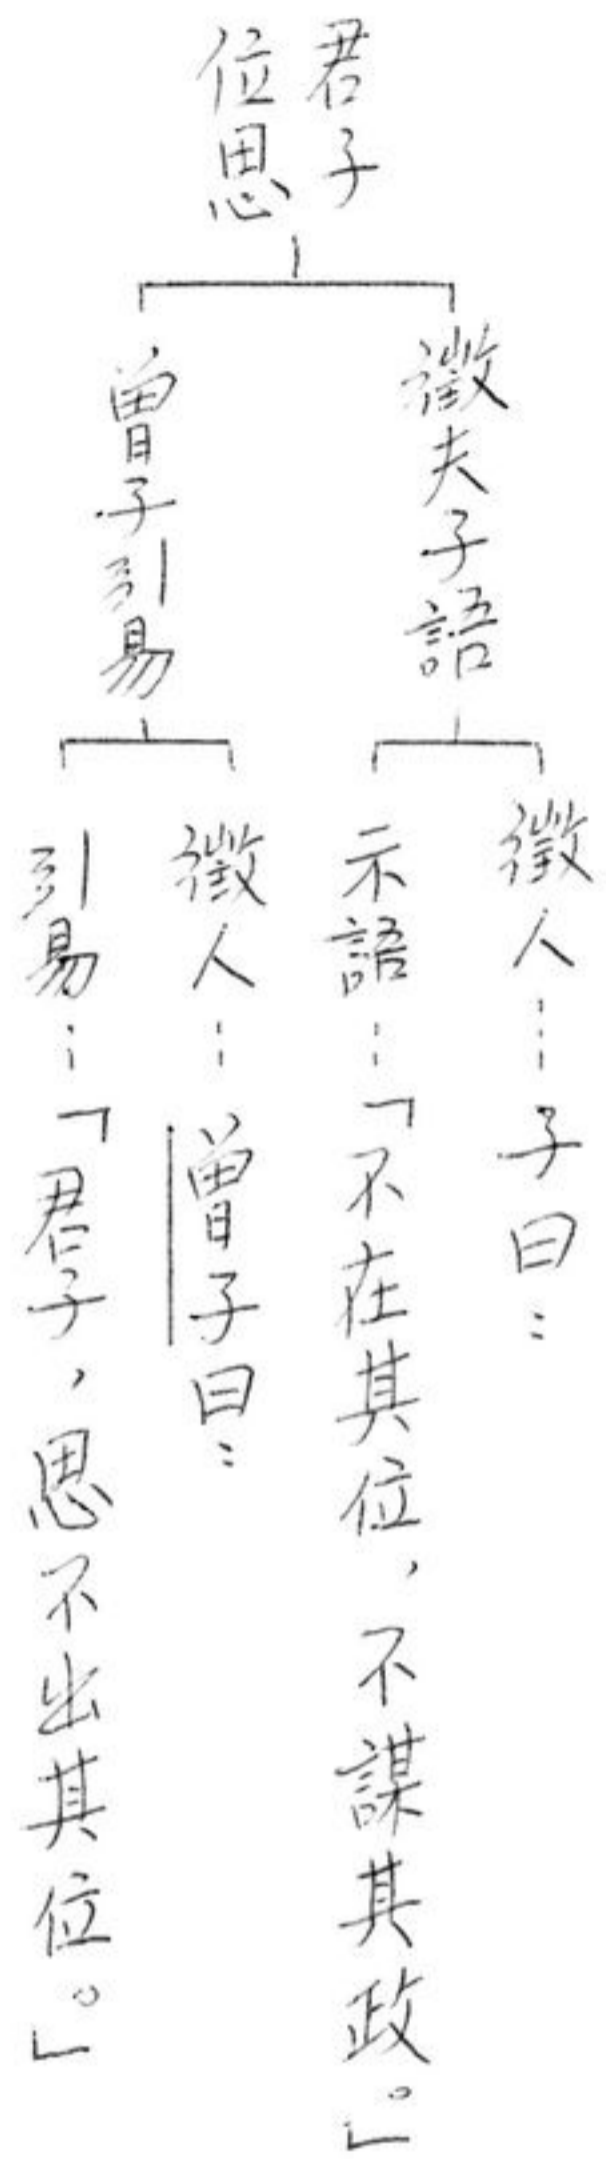 君子
位思
徵夫子語
徵人⋯子曰：
示語⋯「不在其位，不謀其政。」
曾子引易
徵人⋯曾子曰：
引易⋯「君子，思不出其位。」